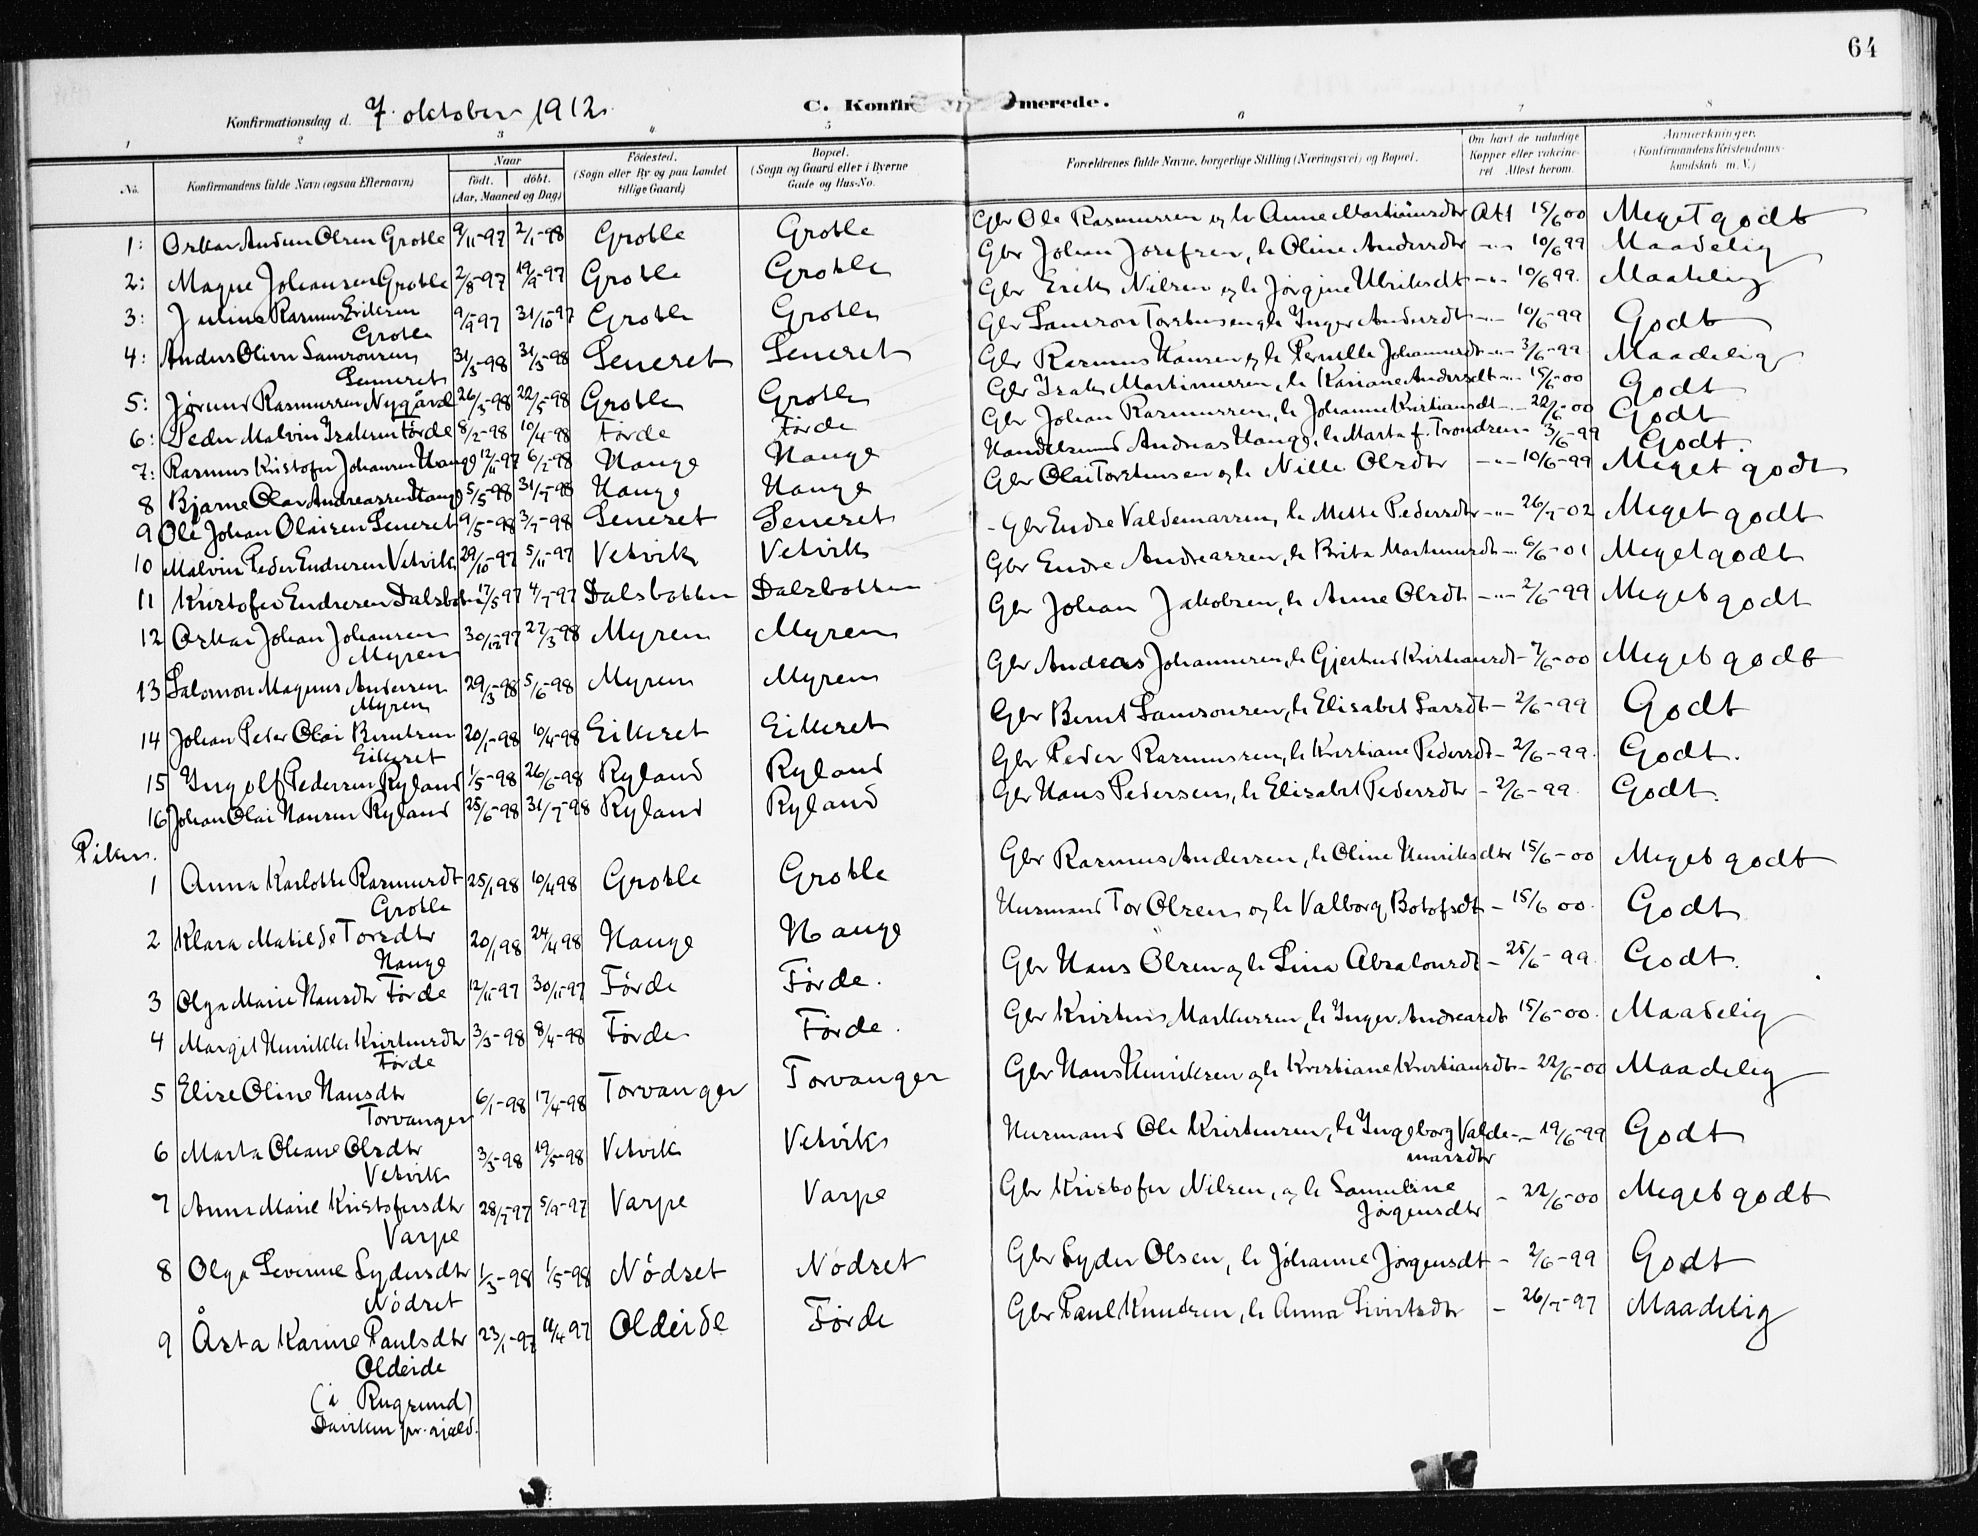 64
Konfirmationsdag d. 7. oktober 1912.
C. Konfir merede.
1 2 3 4 5 6 7 8
No. Konfirmandens fulde Navn (ogsaa Efternavn) Naar født. døbt. (Aar, Maaned og Dag) Fødested. (Sogn eller By og paa Landet tillige Gaard) Bopæl. (Sogn og Gaard eller i Byerne Gade og Hus-No. Forældrenes fulde Navne, borgerlige Stilling (Næringsvei) og Bopæl. Om havt de naturlige Kopper eller vakcineret. Attest herom. Anmærkninger. (Konfirmandens Kristendomskundskab m. V.)
1: Oskar Andun Olsen Grotle 9/11-97 2/1-98 Grotle Grotle Gbr Ole Rasmussen og h Anne Martinusdtr Att 15/6 00 Meget godt
2: Magne Johansen Grotle 2/8-97 19/9-97 Grotle Grotle Gbr Johan Josefsen, h Oline Andersdtr -"- 10/6 99 Maadelig
3: Julius Rasmus Eriksen Grotle 9/9-97 31/10-97 Grotle Grotle Gbr Erik Nilsen og h Jørgine Ulriksdt -"- 10/6 99. Maadelig
4: Anders Oliver Samsonsen Seneret 31/3-98 31/5-98 Seneret Seneret Gbr Samson Torstensen og h Inger Andersdt -"- 10/6-99 Godt
5: Jørund Rasmussen Nygård 26/3-98 22/5-98 Grotle Grotle Gbr Rasmus Hansen og h Pernille Johannesdt -"- 3/6-99 Maadelig
6: Peder Malvin Isaksen Førde 8/2-98 10/4-98 Førde Førde Gbr Isak Martinussen, h Kariane Andersdt -"- 15/6-00 Godt
7: Rasmus Kristofer Johansen Hauge 12/11-97 6/2-98 Hauge Hauge Gbr Johan Rasmussen, h Johanne Kristiansdt -"- 22/6-00 Godt
8 Bjarne Olav Andreassen Hauge 5/5-98 31/7-98 Hauge Hauge Handelsmand Andreas Hauge, h Marta f. Trondsen - 3/6-99 Godt.
9 Ole Johan Olaisen Seneret 9/5-98 3/7-98 Seneret Seneret Gbr Olai Torstensen og h Nille Olsdtr -"- 10/6-99 Meget godt
10 Malvin Peder Endresen Vetvik 29/10-97 5/11-97 Vetvik Vetvik - Gbr Endre Valdemarsen, h Mette Pedersdtr -"- 26/7-02 Meget godt
11 Kristofer Endresen Dalsbotten 17/5-97 4/7-97 Dalsbotten Dalsbotten Gbr Endre Andreassen, h Brita Martinusdt -"- 6/6-01 Meget godt
12 Oskar Johan Johansen Myren 30/12-97 27/3-98 Myren Myren Gbr Johan Jakobsen, h Anne Olsdt -"- 2/6-99 Meget godt
13 Salomon Magnus Andersen Myren 29/3-98 5/6-98 Myren Myren Gbr Andreas Johannesen, h Gjertrud Kristiansdt - 7/6-00 Meget godt
14 Johan Peter Olai Berntsen Eikeset 20/1-98 10/4-98 Eikeset Eikeset Gbr Bernt Samsonsen, h Elisabet Larsdt - 2/6-99 Godt
15 Ingolf Pedersen Ryland 1/5-98 26/6-98 Ryland Ryland Gbr Peder Rasmussen, h Kristiane Pedersdt - 2/6-99. Godt.
16 Johan Olai Hansen Ryland 25/6-98 31/7-98 Ryland Ryland Gbr Hans Pedersen, h Elisabet Pedersdtr - 2/6-99. Godt.
Piker.
1 Anna Karlotte Rasmusdt Grotle 25/1 98 10/4 98 Grotle Grotle Gbr Rasmus Andersen, h Oline Henriksdtr 15/6-00 Meget godt
2 Klara Matilde Torsdtr Hauge 20/1 98 24/4 98 Hauge Hauge Husmand Tor Olsen og h Valborg Botofsdt - 15/6 00. Godt
3 Olga Marie Hansdtr Førde 12/11-97 30/11-97 Førde Førde. Gbr Hans Olsen og h Sina Absalonsdt - 25/6-99. Godt.
4 Margit Henrikke Kristensdtr Førde 3/3-98 8/4-98 Førde Førde. Gbr Kristen Markussen, h Inger Andreasdt 15/6-00. Maadelig
5 Elise Oline Hansdtr Torvanger 6/1-98 17/4-98 Torvanger Torvanger Gbr Hans Henriksen og h Kristiane Kristiansdtr - 22/6-00 Maadelig
6 Marta Oleane Olsdtr Vetvik 3/3-98 19/5-98 Vetvik Vetvik Husmand Ole Kristensen, h Ingeborg Valdemarsdtr - 19/6-99 Godt
7 Anne Marie Kristofersdtr Varpe 28/7-97 5/9-97 Varpe Varpe Gbr Kristofer Nilsen, og h Samueline Jørgensdtr - 22/6-00 Meget godt
8 Olga Severine Sydersdtr Nødset 1/3-98 1/5-98 Nødset Nødset Gbr Syder Olsen, h Johanne Jørgensdt - 2/6-99 Godt
9 Åsta Karine Paulsdtr Oldeide 23/1-97 11/4 97 Oldeide Førde Gbr Paul Knudsen, h Anna Sivertsdtr - 26/7-97 Maadelig
(å Rugsund)